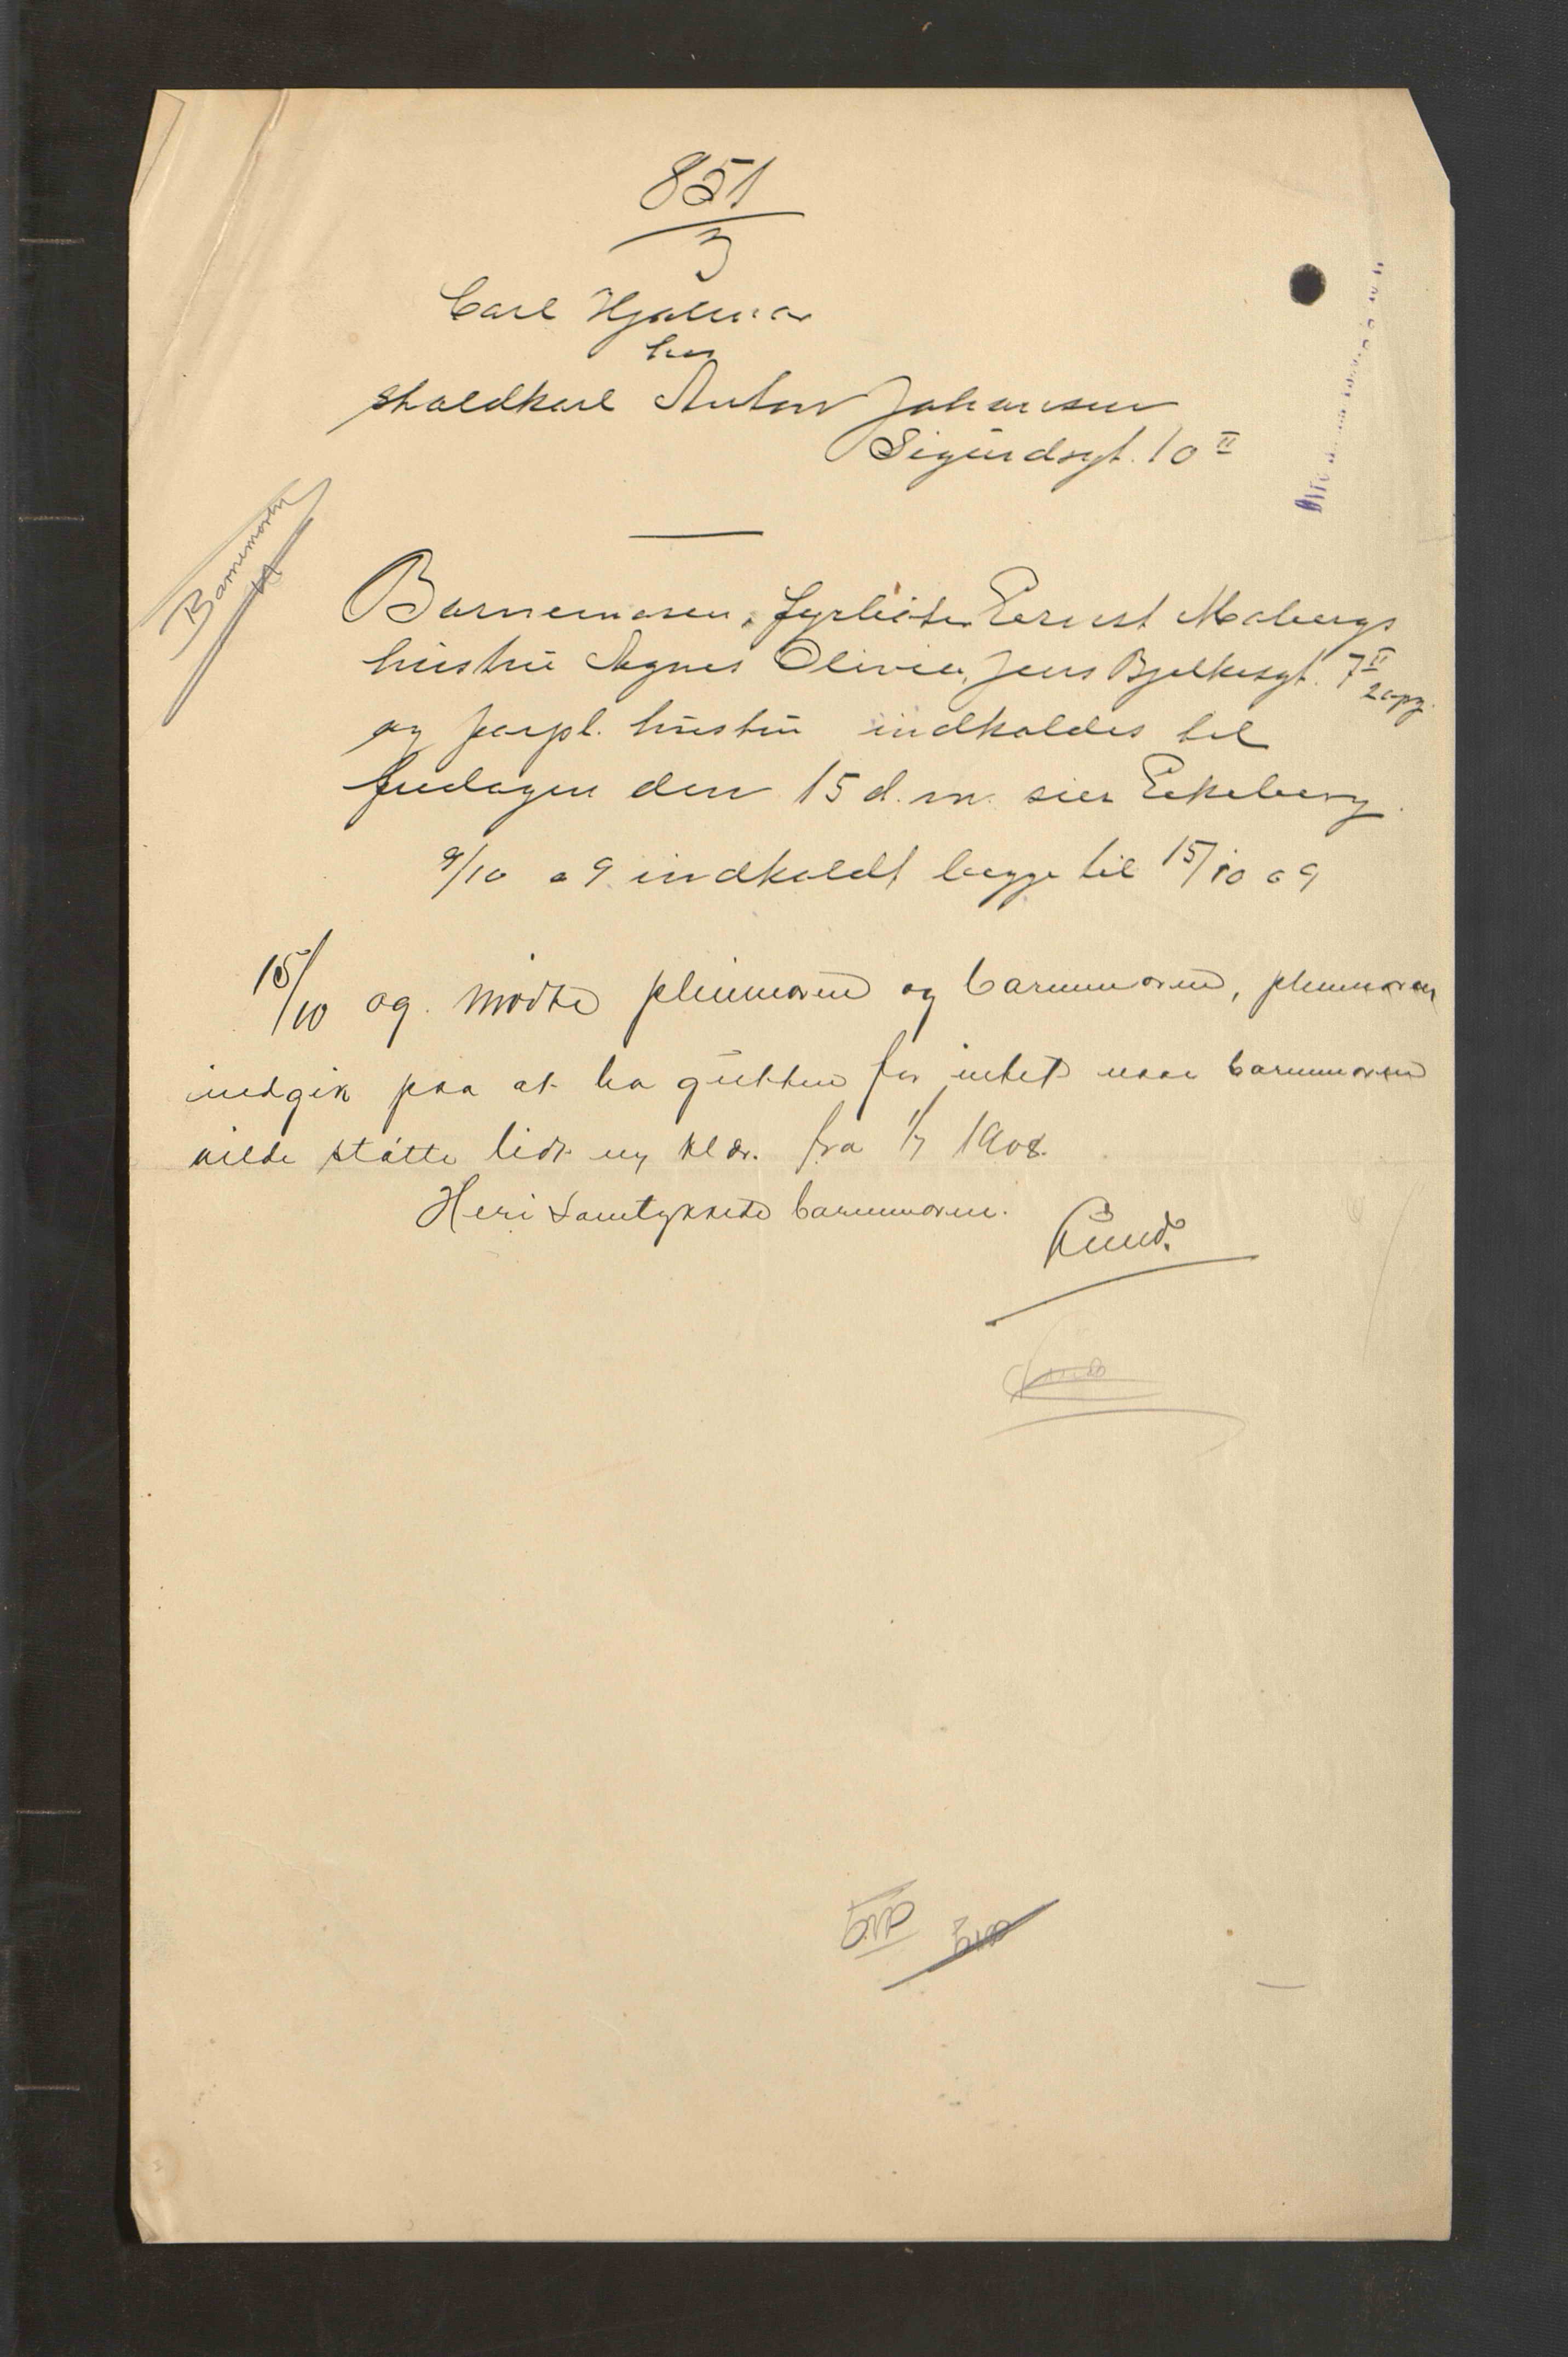 851
3
Carl Hjalmar
hos
staldkarl Anton Johansen
Sigurdsgt. 10 II
Barnemoren
Barnemoren, fyrbøter Ernst Mobergs
hustru Agnes Olivia, Jens Bjelkesgt. 7 II
2 opg.
og forpl. hustru indkaldes til
fredagen den 15 d.m. sier Eekeberg
9/10 09 indkaldt begge til 15/10 09
15/10 09. mødte pleiemoren og barnemoren, pleiemoren
indgik paa at ha gutten for intet naar barnemoren
vilde støtte lidt m klær. fra 1/7 1908.
Heri samtykkede barnemoren.
Lund.